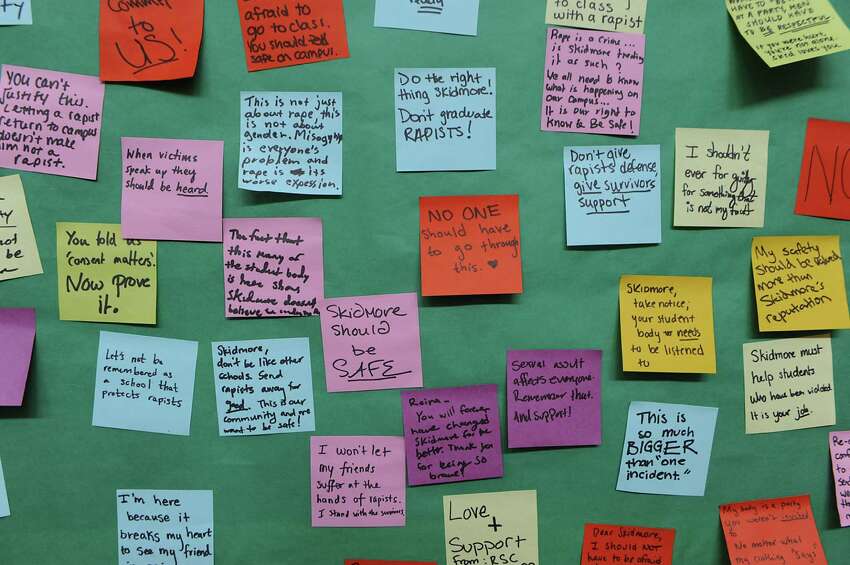 Commit
to
US!
afraid to
go to class.
You should feel
safe on campus.
to class
with a rapist
at a party, men
should have
to be respectful
if you were hurt,
you're not alone
skid loves you.
You can't
justify this.
Letting a rapist
return to campus
doesn't make
him not a
rapist.
This is not just
about rape, this
is not about
gender. Misogyny
is everyone's
problem and
rape is its
worse expession.
Do the right
thing Skidmore!
Don't graduate
RAPISTS!
Rape is a crime...
is Skidmore treating
it as such?
We all need to know
what is happening on
our campus...
It is our right to
know & Be Safe!
When victims
speak up they
should be heard.
Don't give
rapists defense,
give survivors
support
I shouldn't
ever for
for something that
is not my fault
NO
You told us
'consent matters'.
Now prove
it.
The fact that
this many of
the student body
is here shows
Skidmore doesn't
believe in
NO ONE
should have
to go through
this. ♥
Skidmore
should
be
SAFE
Skidmore,
take notice,
your student
body needs
to be listened
to
My safety
should be valued
more than
Skidmore's
reputation
Let's not be
remembered as
a school that
protects rapists
Skidmore,
don't be like other
schools. Send
rapists away for
good. This is our
community and we
want to be safe!
Reina-
You will forever
have changed
Skidmore for the
better. Thank you
for being so
brave!
Sexual assult
affects everyone.
Remember that.
And support!
Skidmore must
help students
who have been violated
It is your job.
This is
so much
BIGGER
than "one
incident."
I won't let
my friends
suffer at the
hands of rapists.
I stand with the survivors.
I'm here
because it
breaks my heart
to see my friend
Love
+
Support
From: RSC
Dear Skidmore,
I should not
have to be afraid
My body is a party
you weren't invited
to
No matter what
my clothing "says"